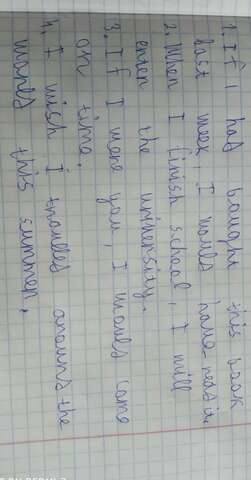 1. If I had bought this book
last week, I would have read it.
2. When I finish school, I will
enter the university.
3. If I were you, I would come
on time.
4. I wish I travelled around the
world this summer.